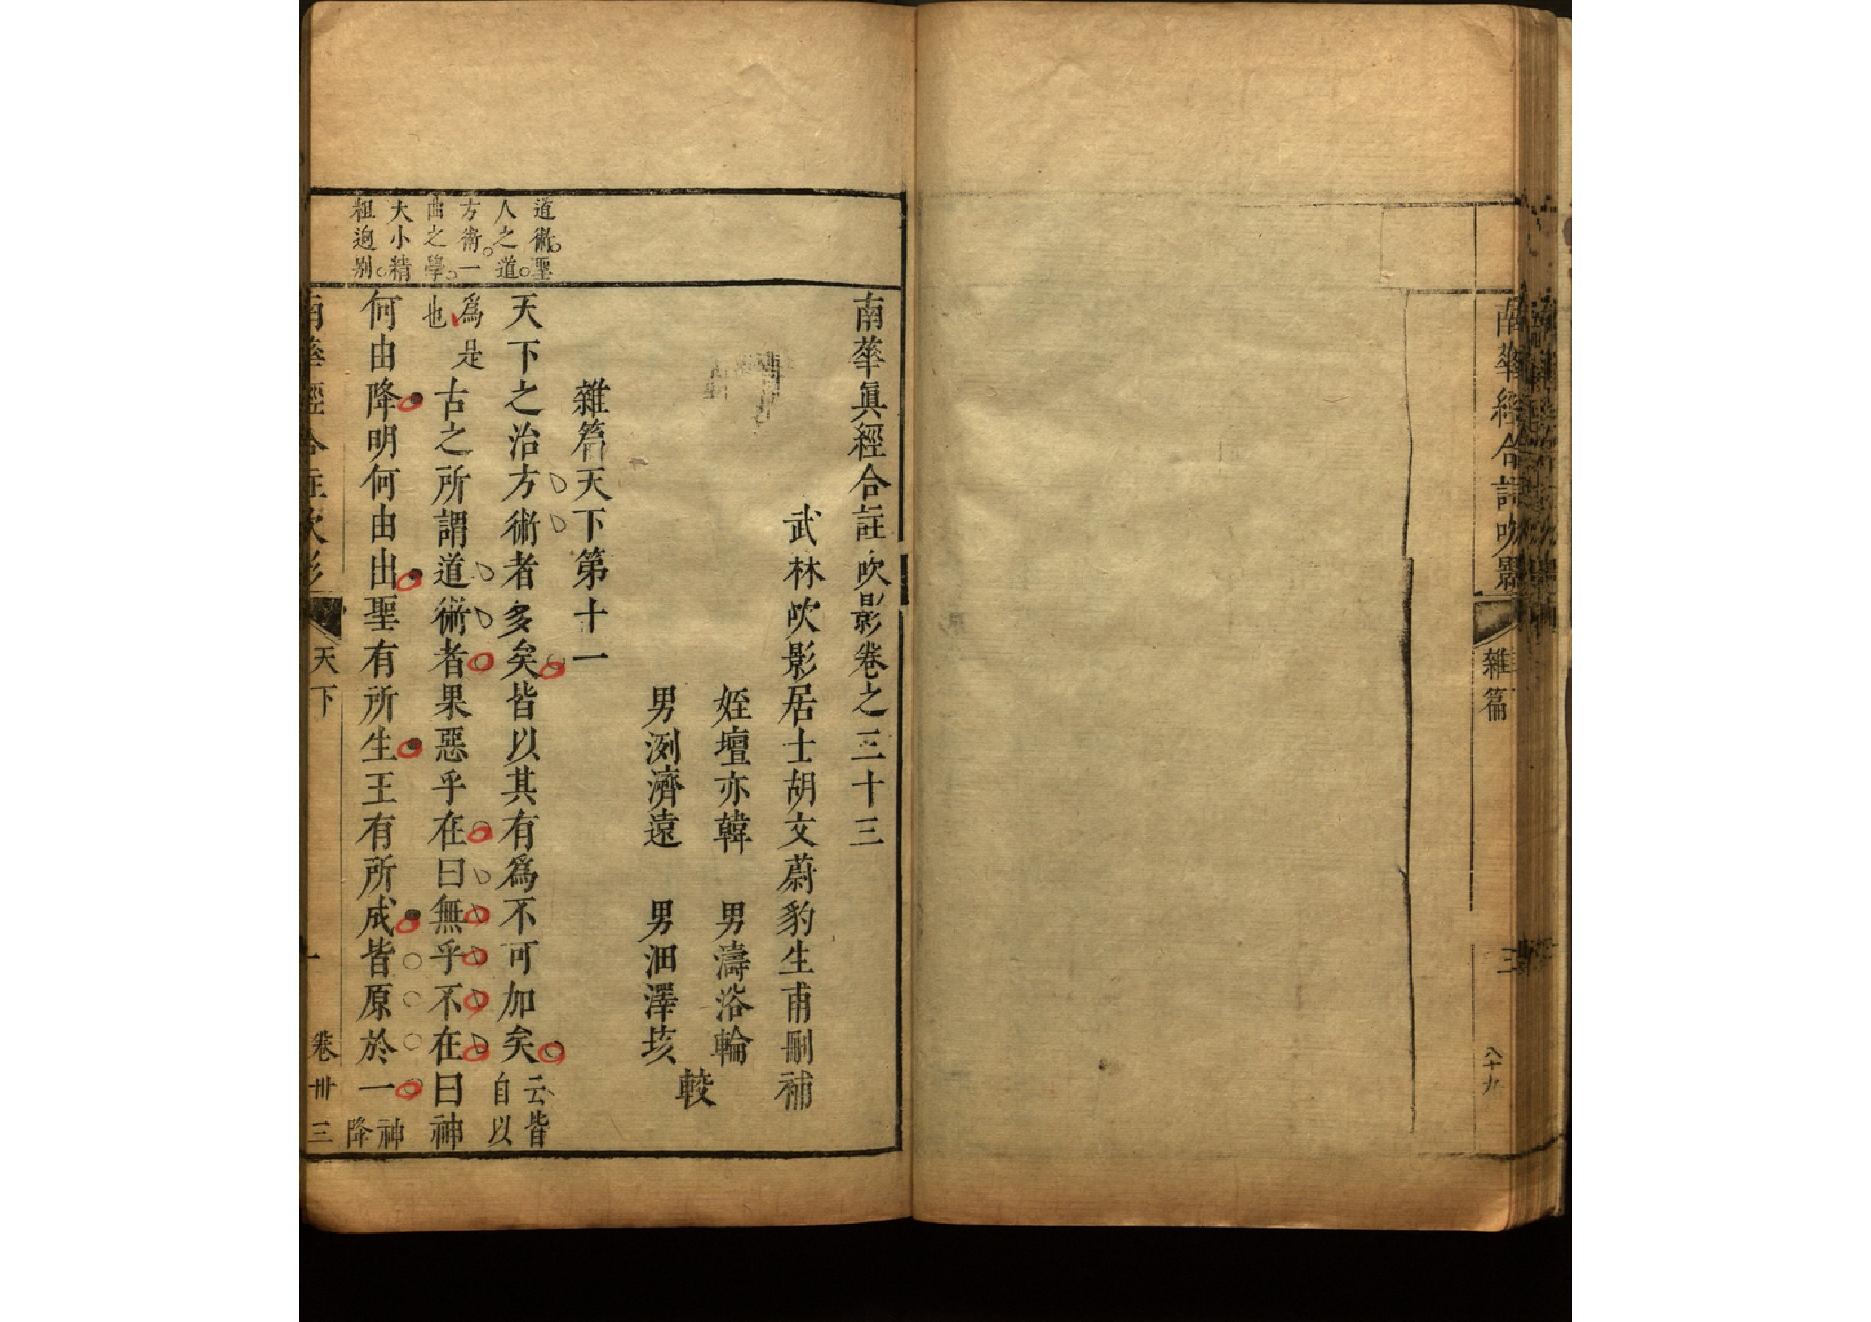 南華經合註吹影
雜篇
三
八十九
南華真經合註吹影卷之三十三
武林吹影居士胡文蔚豹生甫刪補
姪壇亦韓 男濤浴輪
男洌濟遠 男沺澤垓
較
雜篇天下第十一
道術聖
人之道
方術一
曲之學
大小精
粗迥别
天下之治方術者多矣皆以其有爲不可加矣云皆自以
爲是也古之所謂道術者果惡乎在曰無乎不在曰神
何由降明何由出聖有所生王有所成皆原於一神降
南華經合註吹影
天下
一
卷卅三